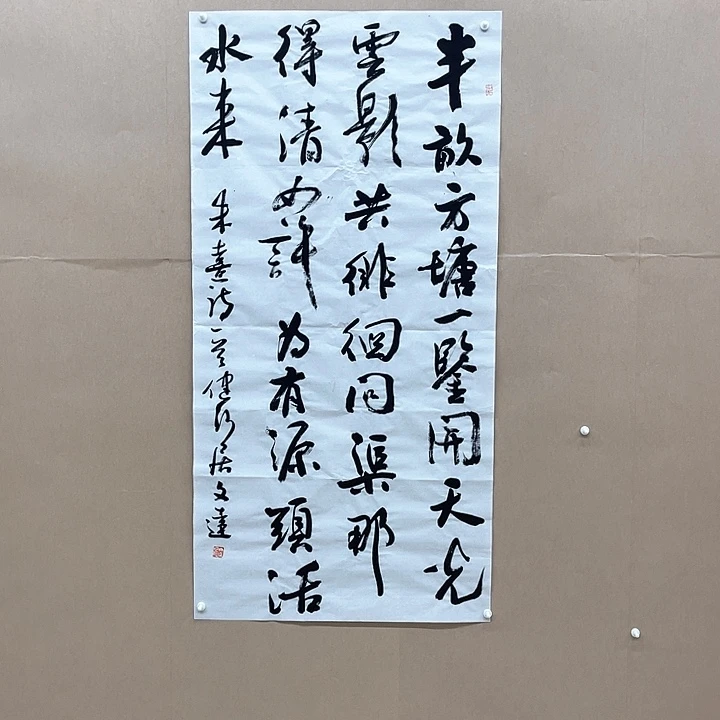 半畝方塘一鑒開天光
雲影共徘徊問渠那
得清如許為有源頭活
水來
朱熹詩一首 健行居文達